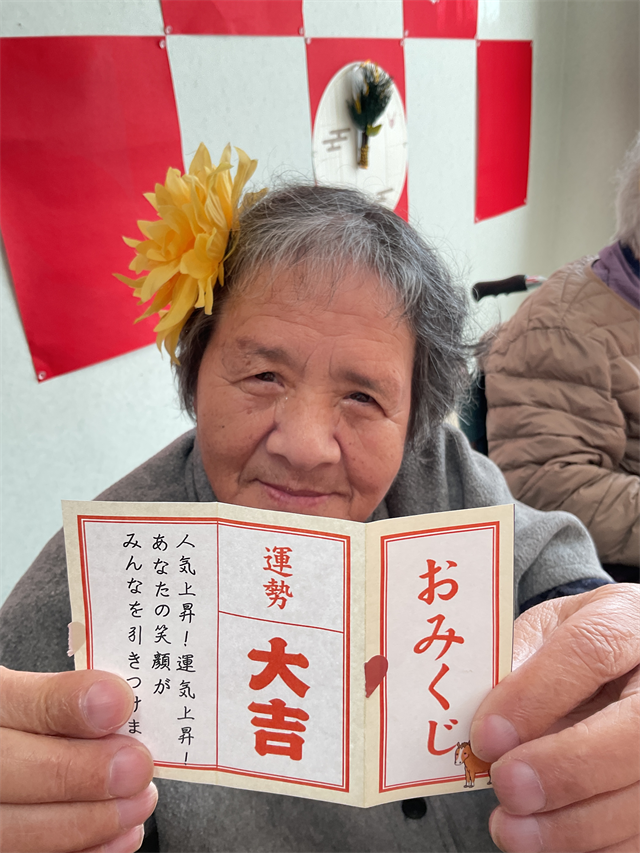 おみくじ
運勢
大吉
人気上昇！運気上昇！
あなたの笑顔が
みんなを引きつけま